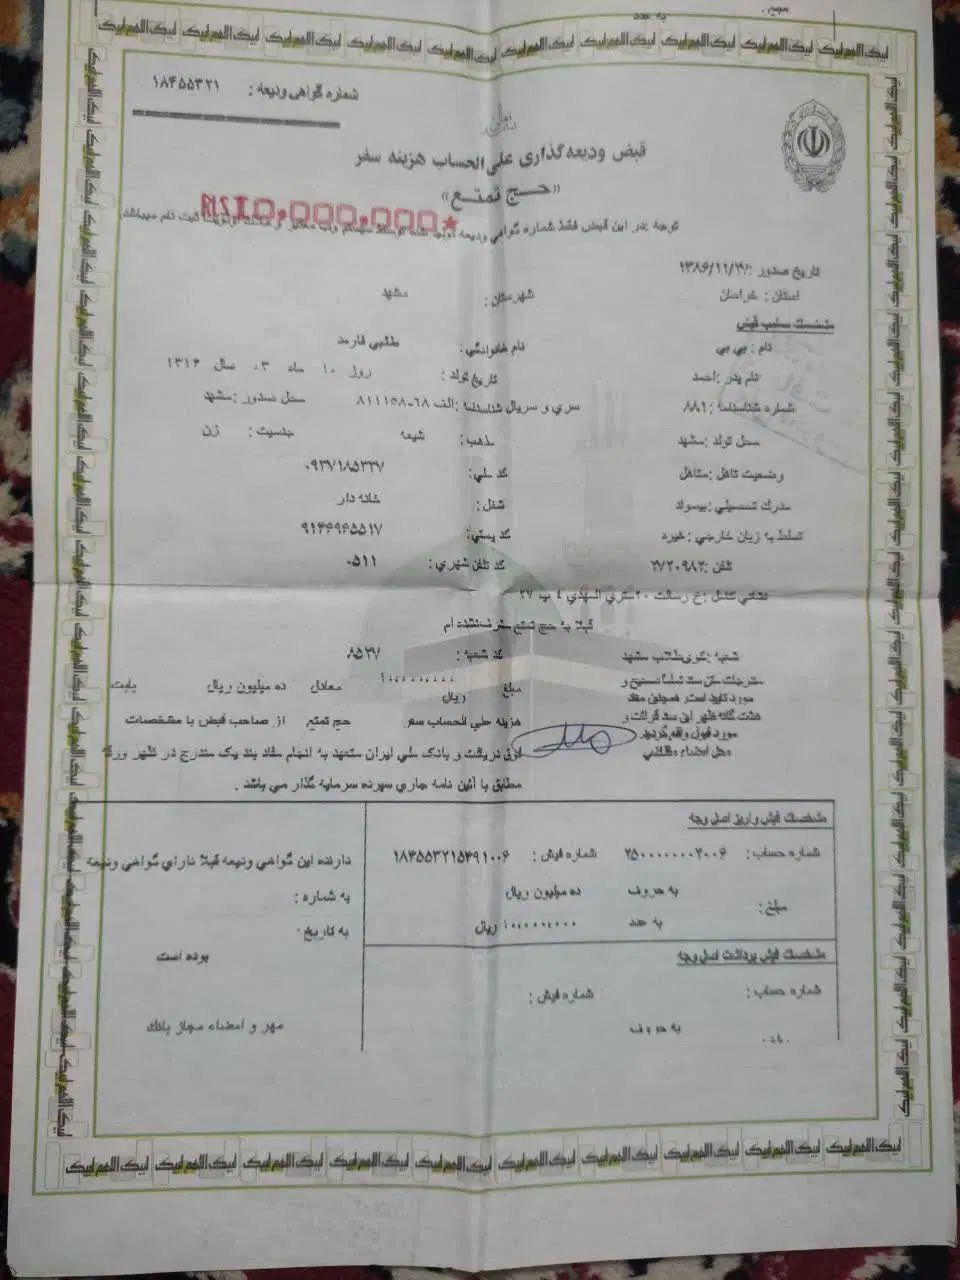 به عدد
لبیک اللهم لبیک
شماره گواهی ودیعه : ۱۸۴۵۵۳۲۱
قبض ودیعه گذاری علی الحساب هزینه سفر
«حج تمتع»
RLS10,000,000*
توجه :در این قبض فقط شماره گواهی ودیعه ثبت نام میباشد
تاریخ صدور : ۱۳۸۶/۱۱/
استان : خراسان شهرستان : مشهد
مشخصات صاحب قبض
نام : بی بی نام خانوادگی : طلبی قارمد
نام پدر :احمد تاریخ تولد : روز ۱۰ ماه ۰۳ سال ۱۳۱۶
شماره شناسنامه : ۸۸۹ سری و سریال شناسنامه :الف ۶۸-۸۱۱۱۵۸ محل صدور :مشهد
محل تولد :مشهد مذهب : شیعه جنسیت : زن
وضعیت تاهل :متاهل کد ملی: ۰۹۳۷۱۸۵۳۳۷
مدرک تحصیلی :بیسواد شغل: خانه دار
تسلط به زبان خارجی :غیره کد پستی: ۹۱۴۶۹۶۵۵۱۷
تلفن :۲۷۲۰۹۸۲ کد تلفن شهری : ۰۵۱۱
نشانی کامل :خ رسالت ۲۰متری المهدی ۴ پ ۲۷
قبلا به حج تمتع مشرف نشده ام
شعبه :کوی طلاب مشهد کد شعبه : ۸۵۲۷
مندرجات متن سند تماما صحیح و
مورد تایید است. همچنین مفاد
هشت گانه ظهر این سند قرائت و
مورد قبول واقع گردید.
محل امضاء متقاضی
مبلغ ۱۰۰۰۰۰۰۰ ریال معادل ده میلیون ریال بابت
هزینه علی الحساب سفر حج تمتع از صاحب قبض با مشخصات
فوق دریافت و بانک ملی ایران متعهد به انجام مفاد بند یک مندرج در ظهر ورقه
مطابق با آئین نامه جاری سپرده سرمایه گذار می باشد .
مشخصات فیش واریز اصل وجه
شماره حساب : ۲۵۰۰۰۰۰۰۰۲۰۰۶ شماره فیش : ۱۸۴۵۵۳۲۱۵۴۹۱۰۰۶
مبلغ : به حروف ده میلیون ریال
به عدد ۱۰۰۰۰۰۰۰ ریال
مشخصات فیش برداشت اصل وجه
شماره حساب : شماره فیش :
به حروف
دارنده این گواهی ودیعه قبلا دارای گواهی ودیعه
به شماره :
به تاریخ
بوده است
مهر و امضاء مجاز بانک